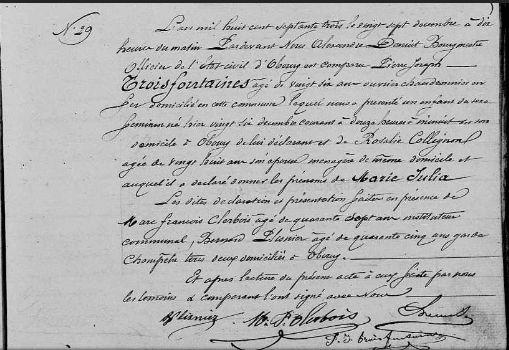 N° 29
L'an mil huit cent septante trois le vingt sept decembre à dix
heures du matin Pardevant Nous Alexandre Bourgmestre
Officier de l'Etat civil d' est comparu Pierre Joseph
Troisfontaines agé de vingt six ans ouvrier en
fer domicilié en cette commune lequel nous a presenté un enfant du sexe
feminin né hier vingt six decembre courant à douze heures à minuit en son
domicile à de lui déclarant et de Rosalie Collignon
agée de vingt huit ans son epouse menagère de même domicile et
auquel il a declaré donner les prénoms de Marie Julia
Les dites declaration et présentation faites en présence de
Marc François Clerbois agé de quarante sept ans instituteur
communal, Bernard agé de quarante cinq ans garde
Champêtre tous deux domiciliés à
Et après lecture du présent acte à eux faite par nous
les temoins & comparant l'ont signé avec Nous
M. F. Clerbois
P. J. troisfontaines